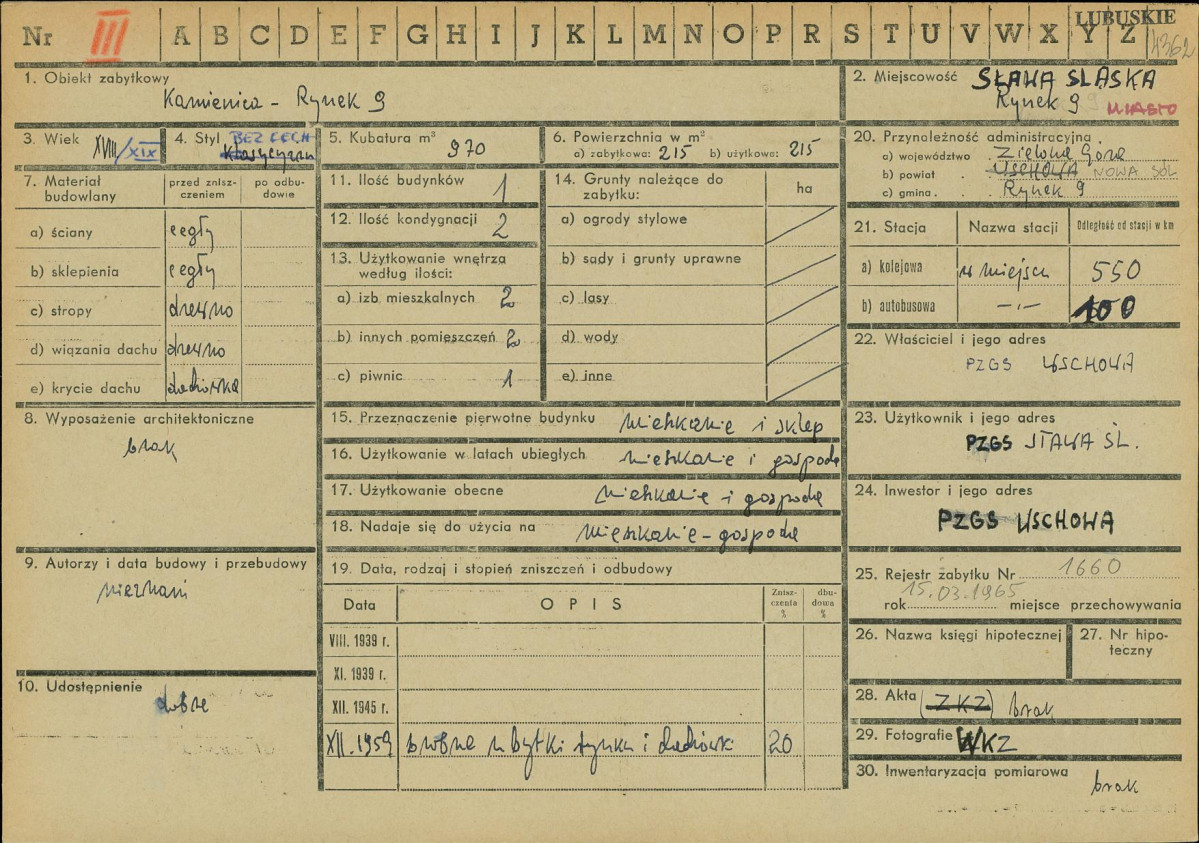 LUBUSKIE
Nr III A B C D E F G H I J K L M N O P R S T U V W X Y Z 4362
1. Obiekt zabytkowy
Kamienica - Rynek 9
2. Miejscowość SŁAWA SLĄSKA
Rynek 9
MIASTO
3. Wiek XVIII/XIX
4. Styl BEZ CECH
klasycyzm
5. Kubatura m³ 970
6. Powierzchnia w m²
a) zabytkowa: 215 b) użytkowa: 215
20. Przynoleżność administracyjna
a) województwo Zielona Góra
b) powiat WSCHOWA NOWA SÓL
c) gmina Rynek 9
7. Materiał budowlany
przed zniszczeniem
po odbudowie
a) ściany cegły
b) sklepienia cegły
c) stropy drewno
d) wiązania dachu drewno
e) krycie dachu dachówka
8. Wyposażenie architektoniczne
brak
9. Autorzy i data budowy i przebudowy
nieznani
10. Udostępnienie
dobre
11. Ilość budynków 1
12. Ilość kondygnacji 2
13. Użytkowanie wnętrza
według ilości:
a) izb mieszkalnych 2
b) innych pomieszczeń 2
c) piwnic 1
14. Grunty należące do
zabytku:
ha
a) ogrody stylowe
b) sady i grunty uprawne
c) lasy
d) wody
e) inne
15. Przeznaczenie pierwotne budynku mieszkanie i sklep
16. Użytkowanie w latach ubiegłych mieszkanie i gospoda
17. Użytkowanie obecne mieszkanie i gospoda
18. Nadaje się do użycia na mieszkanie - gospoda
19. Data, rodzaj i stopień zniszczeń i odbudowy
Data OPIS Zniszczenia % dbudowa %
VIII. 1939 r.
XI. 1939 r.
XII. 1945 r.
XII. 1959 drobne ubytki tynku i dachówki 20
21. Stacja Nazwa stacji Odległość od stacji w km
a) kolejowa w miejscu 550
b) autobusowa -„- 100
22. Właściciel i jego adres
PZGS WSCHOWA
23. Użytkownik i jego adres
PZGS SŁAWA ŚL.
24. Inwestor i jego adres
PZGS WSCHOWA
25. Rejestr zabytku Nr 1660
rok 15.03.1965 miejsce przechowywania
26. Nazwa księgi hipotecznej
27. Nr hipoteczny
28. Akta (ZKZ) brak
29. Fotografie WKZ
30. Inwentaryzacja pomiarowa
brak